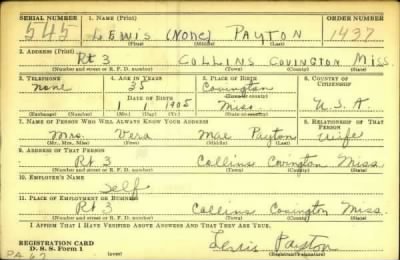 SERIAL NUMBER 1. NAME (Print) ORDER NUMBER
545 LEWIS (None) PAYTON 1437
(First) (Middle) (Last)
2. ADDRESS (Print)
Rt 3 COLLINS COVINGTON MISS.
(Number and street or R. F. D. number) (Town) (County) (State)
3. TELEPHONE 4. AGE IN YEARS 5. PLACE OF BIRTH 6. COUNTRY OF CITIZENSHIP
none 35 Covington
(Town or county)
DATE OF BIRTH
1 1 1905 Miss U.S.A.
(Exchange) (Number) (Mo.) (Day) (Yr.) (State or country)
7. NAME OF PERSON WHO WILL ALWAYS KNOW YOUR ADDRESS 8. RELATIONSHIP OF THAT PERSON
Mrs. Vera Mae Payton Wife
(Mr., Mrs., Miss) (First) (Middle) (Last)
9. ADDRESS OF THAT PERSON
Rt 3 Collins Covington Miss
(Number and street or R. F. D. number) (Town) (County) (State)
10. EMPLOYER'S NAME
Self
11. PLACE OF EMPLOYMENT OR BUSINESS
Rt 3 Collins Covington Miss
(Number and street or R. F. D. number) (Town) (County) (State)
I AFFIRM THAT I HAVE VERIFIED ABOVE ANSWERS AND THAT THEY ARE TRUE.
REGISTRATION CARD
D. S. S. Form 1 (over) Lewis Payton
(Registrant's signature)